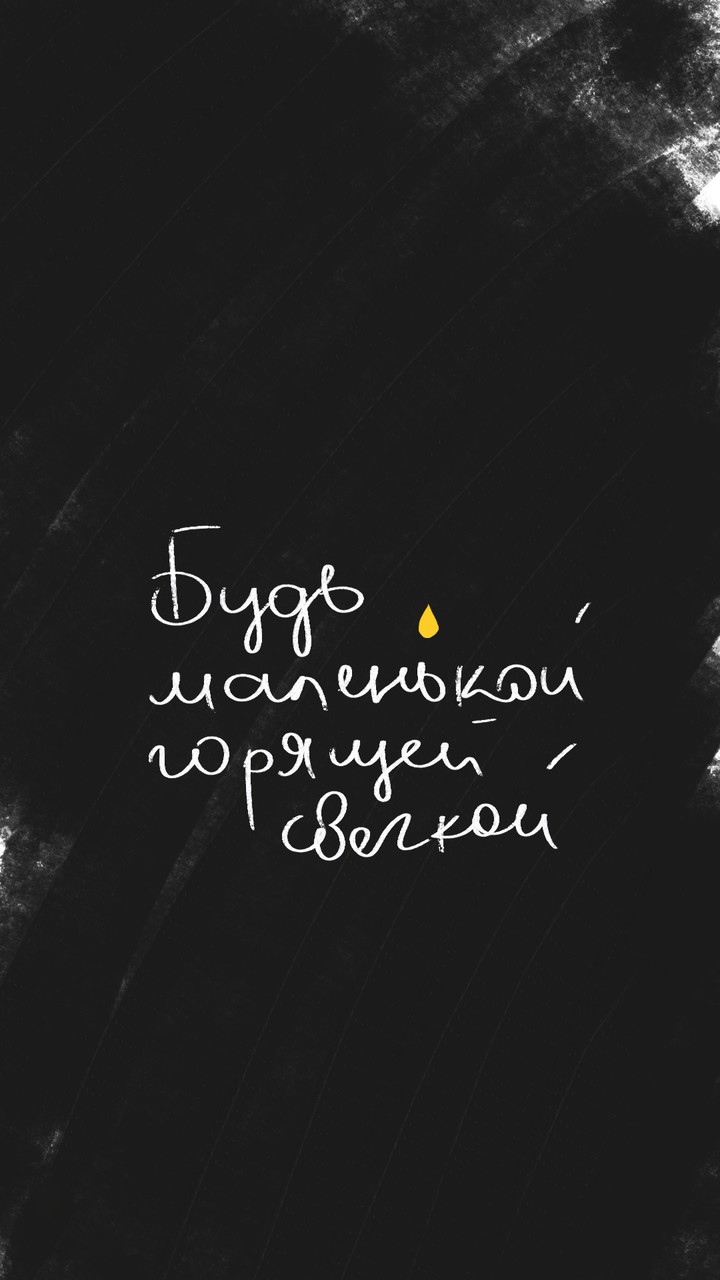 Будь
маленькой
горящей
свечкой